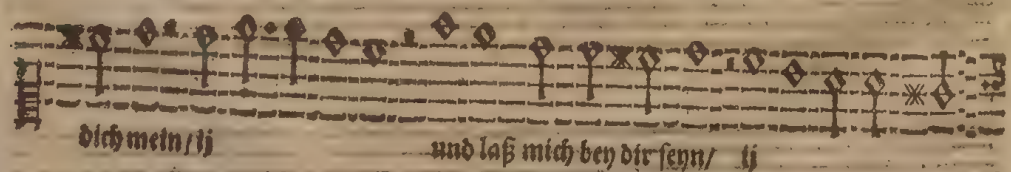 dich mein/ ij und laß mich bey dir seyn/ ij